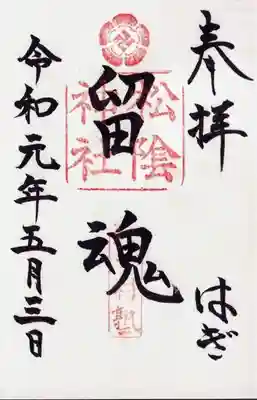 奉拝
はぎ
松陰
神社
留魂
令和元年五月三日